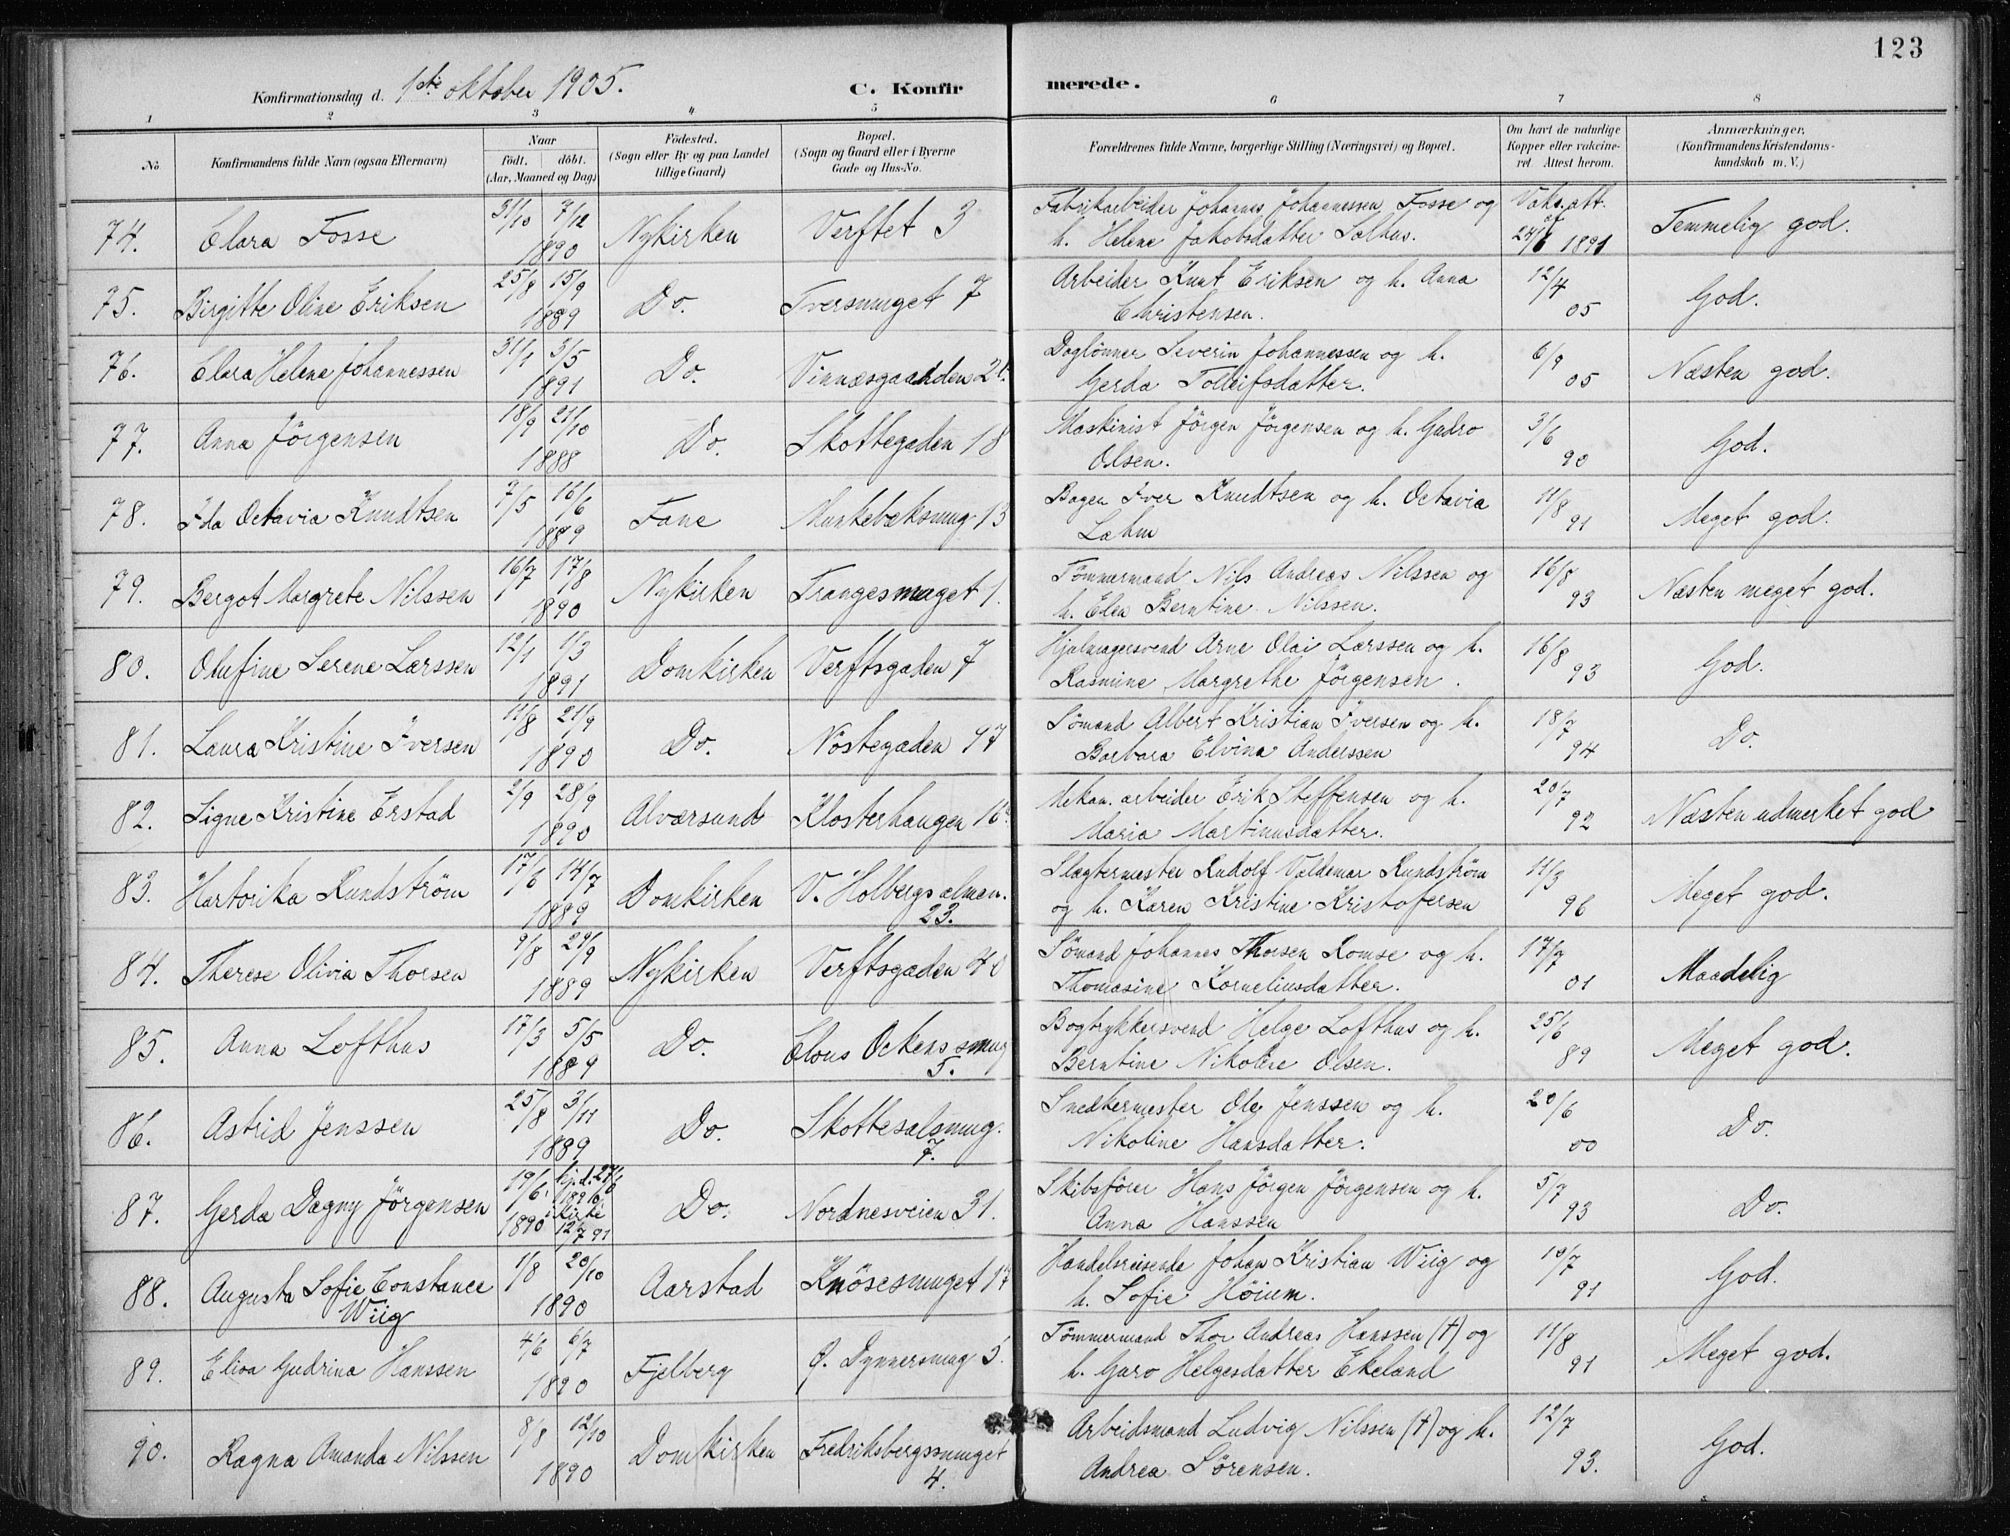 123
Konfirmationsdag d. 1ste oktober 1905. C. Konfirmerede.
1 2 3 4 5 6 7 8
No. Konfirmandens fulde Navn (ogsaa Efternavn) Naar födt. döbt. (Aar, Maaned og Dag) Födested. (Sogn eller By og paa Landet tillige Gaard) Bopæl. (Sogn og Gaard eller i Byerne Gade og Hus-No. Forældrenes fulde Navne, borgerlige Stilling (Næringsvei) og Bopæl. Om havt de naturlige Kopper eller vakcineret. Attest herom. Anmærkninger, (Konfirmandens Kristendomskundskab m. V.)
74. Clara Fosse 31/10 7/12 1890 Nykirken Verftet 3 Fabrikarbeider Johannes Johannessen Fosse og
h. Helene Jakobsdatter Solhus. Vaks.att. af 24/6 1891 Temmelig god.
75. Birgitte Oline Eriksen 25/8 15/9 1889 Do. Tversmuget 7 Arbeider Knut Eriksen og h. Anna
Christensen. 12/4 05 God.
76. Clara Helene Johannessen 31/1 3/5 1891 Do. Vinnæsgaarden Daglönner Severin Johannessen og h.
Gerda Tolleifsdatter. 6/9 05 Næsten god.
77. Anna Jörgensen 18/9 21/10 1888 Do. Skottegaden 18 Maskinist Jörgen Jörgensen og h. Gudro
Olsen. 3/6 90 God.
78. Ida Octavia Knudtsen 7/5 16/6 1889 Fane Munkebæksmug 13 Bager Iver Knudtsen og h. Octavia
Læhm 11/8 91 Meget god.
79. Bergot Margrete Nilssen 16/7 17/8 1890 Nykirken Trangesmuget 1. Tömmermand Nils Andreas Nilssen og
h. Elen Berntine Nilssen. 16/8 93 Næsten meget god.
80. Olufine Serene Larssen 12/1 1/3 1891 Domkirken Verftsgaden 7 Hjulmagersvend Arne Olai Larssen og h.
Rasmine Margrethe Jörgensen. 16/8 93 God.
81. Laura Kristine Iversen 11/8 21/9 1890 Do. Nöstegaden 97 Sömand Albert Kristian Iversen og h.
Barbara Elvina Anderssen 18/7 94 Do.
82. Signe Kristine Erstad 2/9 28/9 1890 Alværsund Klosterhaugen Mekan. arbeider Erik Steffensen og h.
Maria Martinusdatter. 20/7 92 Næsten udmerket god
83. Hartvika Rundström 17/6 14/7 1889 Domkirken V. Holbergsalmen. 23. Slagtermester Rudolf Valdemar Rundström
og h. Karen Kristine Kristofersen 11/3 96 Meget god.
84. Therese Olivia Thorsen 9/8 29/9 1889 Nykirken Verftsgaden Sömand Johannes Thorsen Romse og h.
Thomasine Korneliusdatter. 17/7 01 Maadelig
85. Anna Lofthus 17/3 5/5 1889 Do. Claus Ockens smug 5. Bogtrykkersvend Helge Lofthus og h.
Berntine Nikoline Olsen. 25/6 89 Meget god.
86. Astrid Jenssen 25/8 3/11 1889 Do. Skottesalsmug. 7. Snedkermester Ole Jenssen og h.
Nikoline Hansdatter. 20/6 00 Do.
87. Gerda Dagny Jörgensen 19/6 1890 hj.d. 27/6 1890 i kirke 12/7 91 Do. Nordnesveien 31. Skibsförer Hans Jörgen Jörgensen og h.
Anna Hanssen 5/7 93 Do.
88. Augusta Sofie Constance Wiig 1/8 20/10 1890 Aarstad Knösesmuget 17 Handelsreisende Johan Kristian Wiig og
h. Sofie Höium. 10/7 91 God.
89. Elisa Gudrina Hanssen 4/6 6/7 1890 Fjelberg Ö. Dynnersmug 5. Tömmermand Thor Andreas Hanssen (†) og
h. Guro Helgesdatter Ekeland 11/8 91 Meget god.
90. Ragna Amanda Nilssen 8/8 12/10 1890 Domkirken Fredriksbergssmuget 4. Arbeidsmand Ludvig Nilssen (†) og h.
Andrea Sörensen. 12/7 93. God.